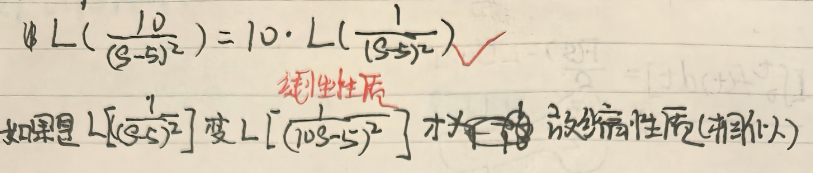 L(10/(S-5)²) = 10·L(1/(S-5)²) ✓
线性性质
如果是 L[1/(S-5)²] 变 L[1/(10S-5)²] 才为 放缩性质(相似)